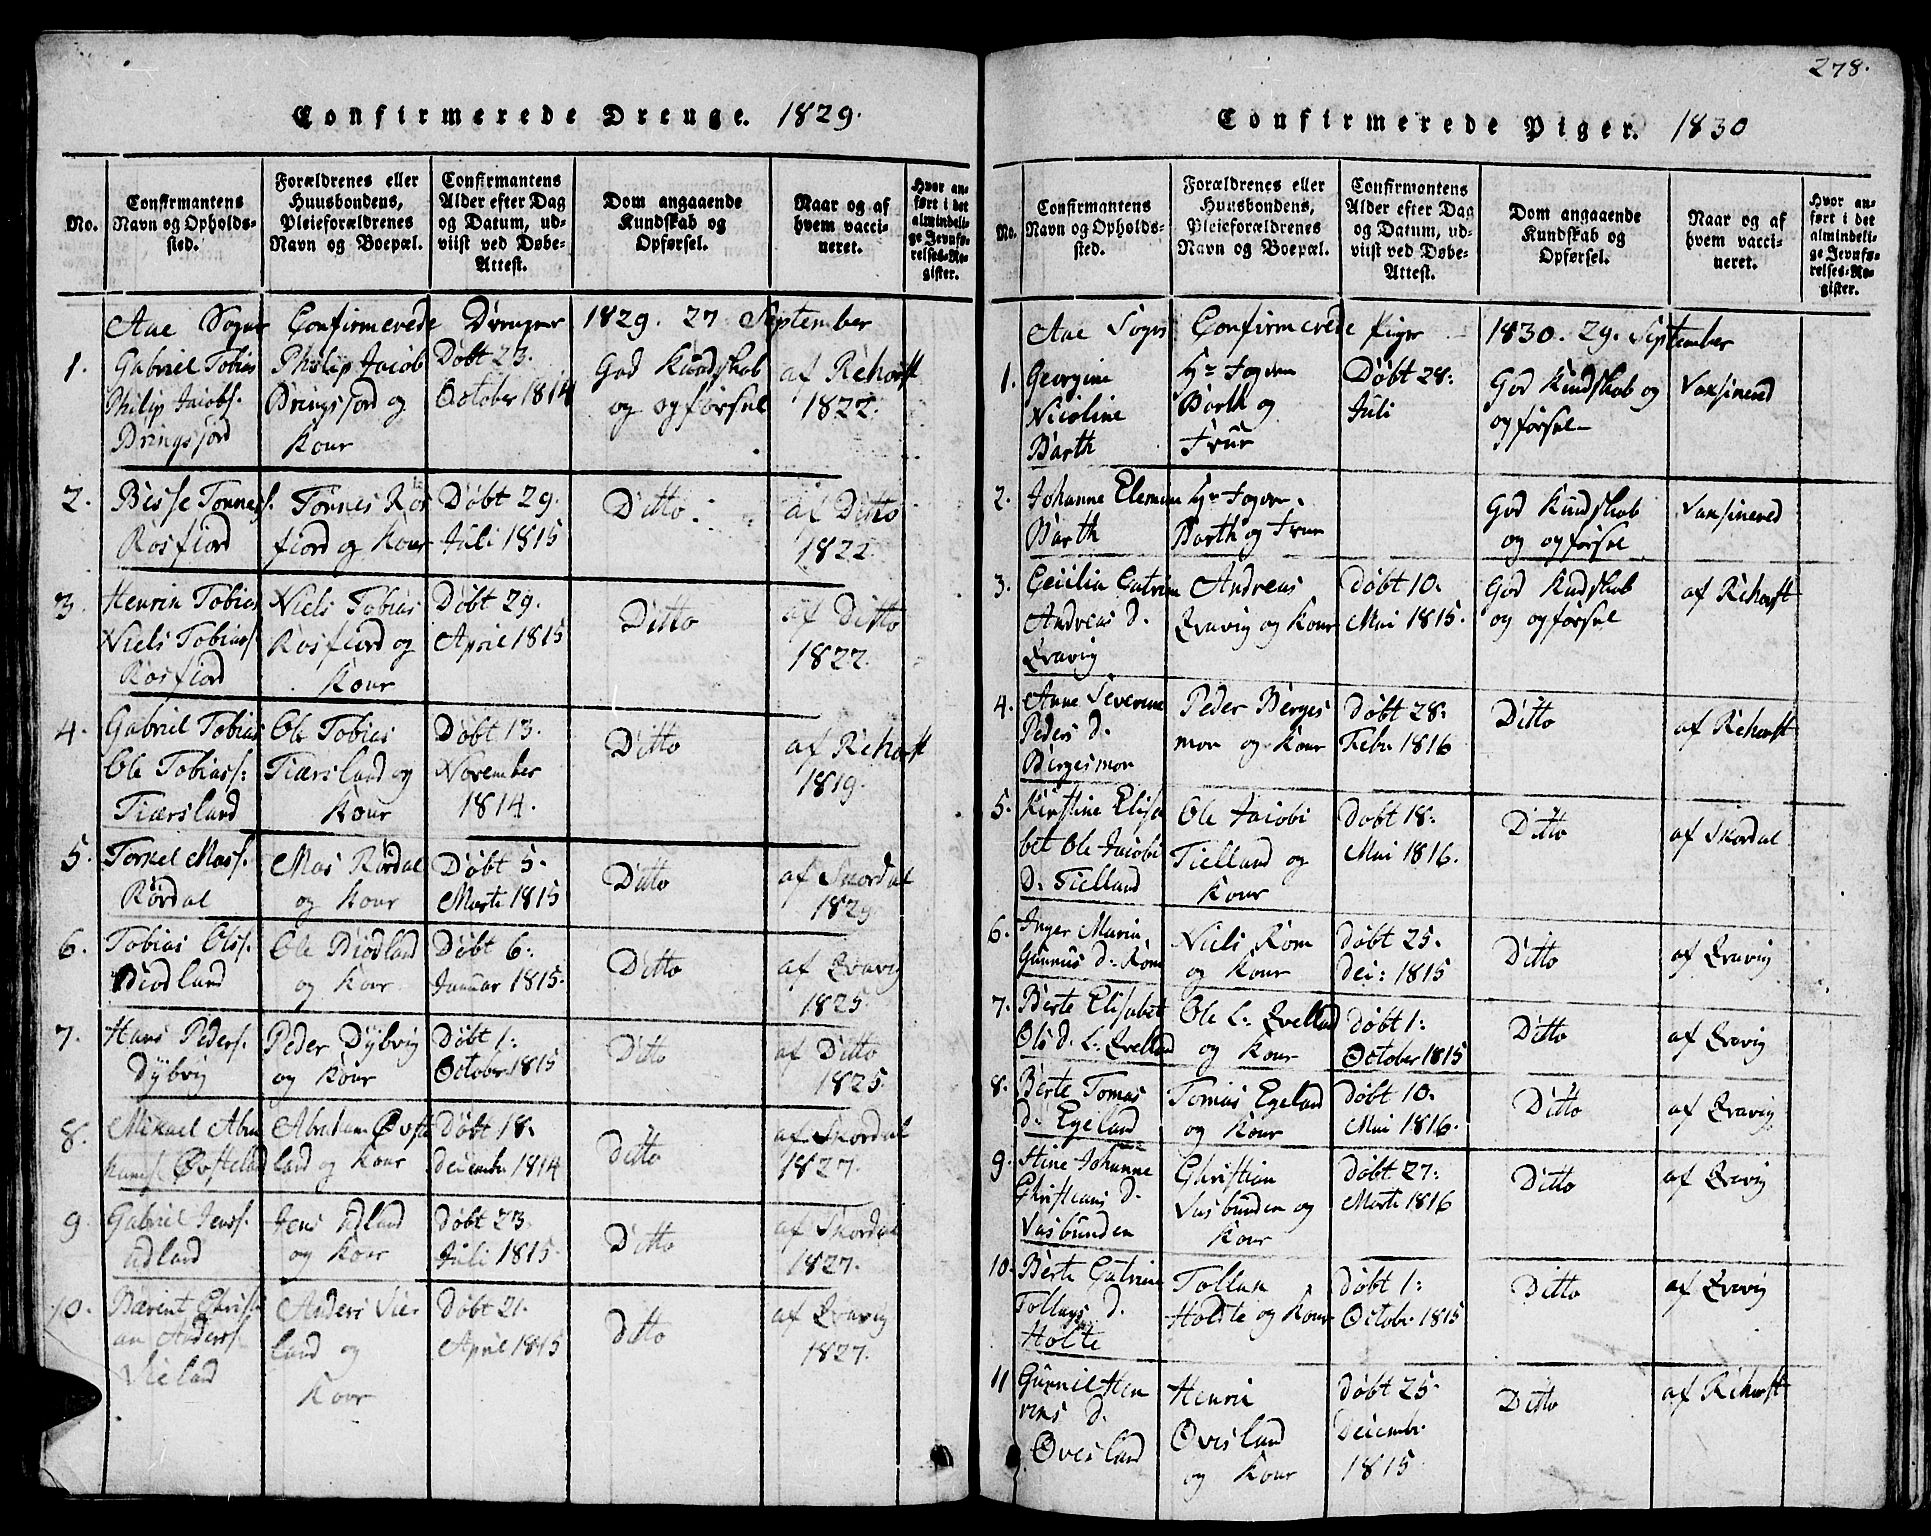 278.
Confirmerede Drenge. 1829.
No.
Confirmantens Navn og Opholds-sted.
Forældrenes eller Huusbondens, Pleieforældrenes Navn og Boepæl.
Confirmantens Alder efter Dag og Datum, ud-viist ved Døbe-Attest.
Dom angaaende Kundskab og Opførsel.
Naar og af hvem vacci-neret.
Hvor an-ført i det almindeli-ge Jevnfø-relses-Re-gister.
Aae Sogns Confirmerede Drenger 1829. 27 September
1. Gabriel Tobias Philip Jacobs. Bringsjord
Philip Jacob Bringsjord og Kour
Døbt 23. October 1814
God Kundskob og opførsel
af Rehorst 1822.
2. Bisse Tønness. Rosfiord
Tønnes Ros fiord og Kour
Døbt 29. Juli 1815
Ditto.
af Ditto 1822
3. Henrik Tobias Niels Tobiass. Rosfiord
Niels Tobias Rosfiord og Kour
Døbt 29. April 1815
Ditto
af Ditto 1822.
4. Gabriel Tobias Ole Tobiass: Tiærsland
Ole Tobias Tiærsland og Kour
Døbt 13. November 1814.
Ditto
af Rehorst 1819.
5. Torkel Mass. Rørdal
Mas Rørdal og Kour
Døbt 5. Marti 1815
Ditto
af Skordal 1829
6. Tobias Olss. Biodland
Ole Biodland og Kour
Døbt 6. Januar 1815.
Ditto
af Qvavig 1825.
7. Hans Peders. Dybvig
Peder Dybvig og Kour
Døbt 1: October 1815
Ditto
af Ditto 1825.
8. Mikael Abra hams. Øvsteland
Abraham Øvste land og Kour
Døbt 18. decembr 1814
ditto
af Skordal 1827.
9. Gabriel Jenss. Udland
Jens Udland og Kour
Døbt 23. Juli 1815.
Ditto
af Skordal 1827.
10. Bærent Christi an Anderss. Vieland
Anders Vie land og Kour
Døbt 21. April 1815
ditto
af Qvavig 1827.
Confirmerede Piger. 1830
No.
Confirmantens Navn og Opholds-sted.
Forældrenes eller Huusbondens, Pleieforældrenes Navn og Boepæl.
Confirmantens Alder efter Dag og Datum, ud-viist ved Døbe-Attest.
Dom angaaende Kundskab og Opførsel.
Naar og af hvem vacci-neret.
Hvor an-ført i det almindeli-ge Jevnfø-relses-Re-gister.
Aae Sogns Confirmerede Piger 1830. 29. September
1. Georgine Nicoline Barth
Hr Fogden Barth og Frue
Døbt 28: Juli
God Kundskob og opførsel
Vaksinered
2. Johanne Barth
Hr Fogden. Barth og Frue
God Kundskob og opførsel
Vaksinered
3. Cecilia Catrine Andreas d. Qvavig
Andreas Qvavig og Kour
Døbt 10. Mai 1815.
God Kundskob og opførsel
af Rehorst
4. Anne Severine Peders d. Bergesmon
Peder Berges mon og Kour
Døbt 28. Febr. 1816
Ditto
af Rehorst
5. Kirstine Elisa bet Ole Jacobs d. Tielland
Ole Jacobs Tielland og Kour
Døbt 18: Mai 1816.
Ditto
af Skordal
6. Inger Maria d. Rom
Niels Rom og Kour
døbt 25. dec: 1815
Ditto
af Qvavig
7. Berte Elisabet Ols d. L. Qvelland
Ole L. Qvelland og Kour
Døbt 1: October 1815
Ditto
af Qvavig
8. Berte Tomas d. Egeland
Tomas Egeland og Kour
døbt 10. Mai 1816.
Ditto
af Qvavig
9. Stine Johanne Christians d. Vasbunden
Christian Vasbunden og Kour
døbt 27: Marti 1816
Ditto
af Qvavig
10. Berte Catrine Tollags d. Holte
Tollak Holdte og Kour
døbt 1: Octobr. 1815
Ditto
af Qvavig
11 Gunnil Hen riks d. Øvesland
Henrik Øvesland og Kour
døbt 25. Decembr. 1815
Ditto
af Rehorst